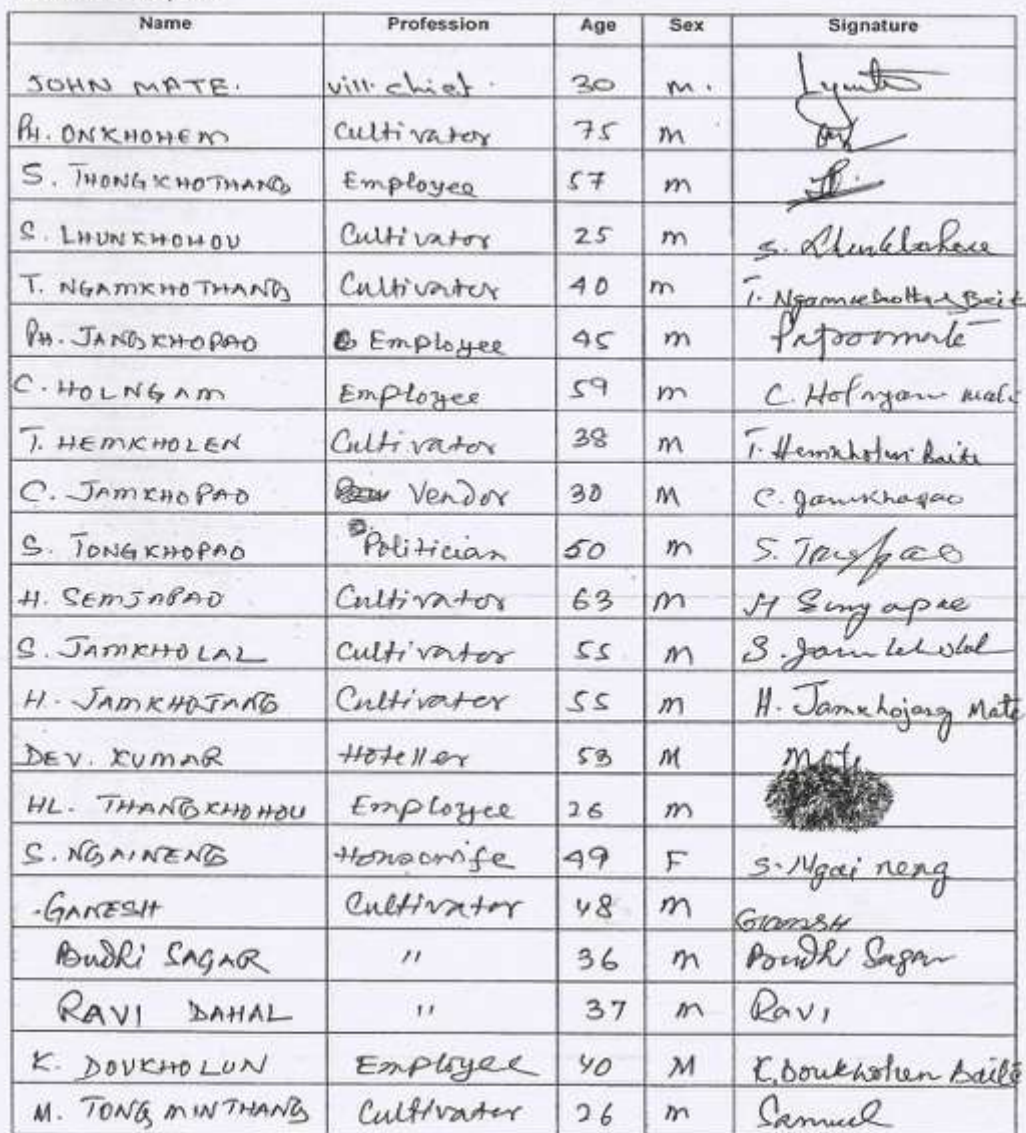 Name Profession Age Sex Signature
JOHN MATE. vill. chief. 30 M.
PH. ONKHOHEM Cultivator 75 M
S. THONGKHOTHANG Employee 57 M
S. LHUNKHOHOU Cultivator 25 M S. Lhunkhohou
T. NGAMKHOTHANG Cultivator 40 M T. Ngamkhothang Baite
PH. JANGKHOPAO Employee 45 M
C. HOLNGAM Employee 59 M C. Holngam Mate
T. HEMKHOLEN Cultivator 38 M T. Hemkholen Baite
C. JAMKHOPAO Vendor 30 M C. Jamkhopao
S. TONGKHOPAO Politician 50 M S.
H. SEMJAPAO Cultivator 63 M H
S. JAMKHOLAL Cultivator 55 M S. Jamkholal
H. JAMKHOJANG Cultivator 55 M H. Jamkhojang Mate
DEV. KUMAR Hoteller 53 M
HL. THANGKHOHOU Employee 26 M
S. NGAINENG Housewife 49 F S. Ngaineng
GANESH Cultivator 48 M GANESH
BUDHI SAGAR " 36 M Budhi Sagar
RAVI DAHAL " 37 M Ravi
K. DOUKHOLUN Employee 40 M K. Doukholun Baite
M. TONGMINTHANG Cultivator 26 M Samuel